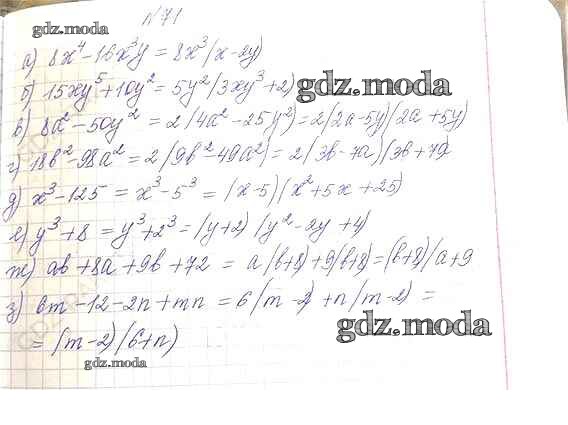 №71
gdz.moda
а) 8x⁴-16x³y = 8x³(x-2y)
б) 15xy⁵+10y² = 5y²(3xy³+2)
gdz.moda
в) 8a²-50y² = 2(4a²-25y²)=2(2a-5y)(2a+5y)
г) 18b²-98a² = 2(9b²-49a²)=2(3b-7a)(3b+7a
д) x³-125 = x³-5³ = (x-5)(x²+5x+25)
е) y³+8 = y³+2³ = (y+2)(y²-2y+4)
ж) ab+8a+9b+72 = a(b+8)+9(b+8)=(b+8)(a+9
з) 6m-12-2n+mn = 6(m-2)+n(m-2) =
gdz.moda
= (m-2)(6+n)
gdz.moda